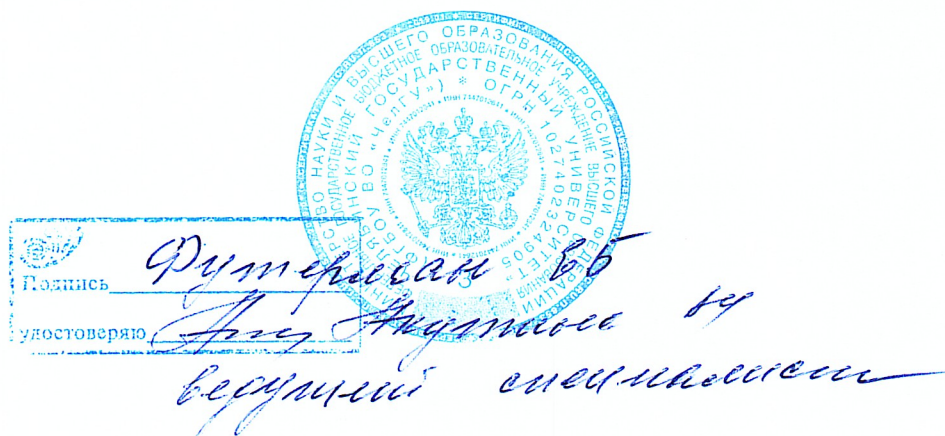 МИНИСТЕРСТВО НАУКИ И ВЫСШЕГО ОБРАЗОВАНИЯ РОССИЙСКОЙ ФЕДЕРАЦИИ
ГОСУДАРСТВЕННОЕ БЮДЖЕТНОЕ ОБРАЗОВАТЕЛЬНОЕ УЧРЕЖДЕНИЕ ВЫСШЕГО ОБРАЗОВАНИЯ
ЧЕЛЯБИНСКИЙ ГОСУДАРСТВЕННЫЙ УНИВЕРСИТЕТ»
ФГБОУ ВО «ЧелГУ») * ОГРН 1027402324905
Подпись Футерман ЕБ
удостоверяю
ведущий специалист